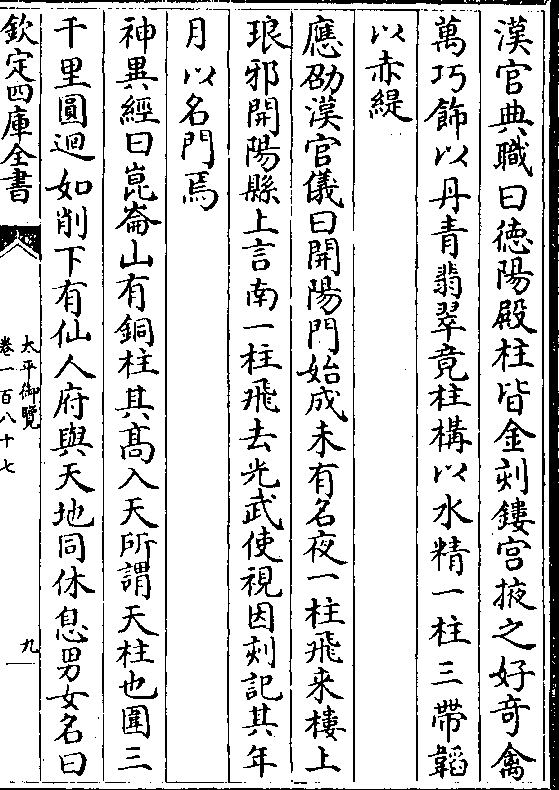 漢官典職曰徳陽殿柱皆金刻鏤宫掖之好竒禽
萬巧飾以丹青翡翠竟柱構以水精一柱三帶韜
以赤緹
應劭漢官儀曰開陽門始成未有名夜一柱飛来樓上
琅邪開陽縣上言南一柱飛去光武使視因刻記其年
月以名門焉
神異經曰崑崙山有銅柱其髙入天所謂天柱也圍三
千里圓迴如削下有仙人府與天地同休息男女名曰
欽定四庫全書
太平御覽
卷一百八十七
九